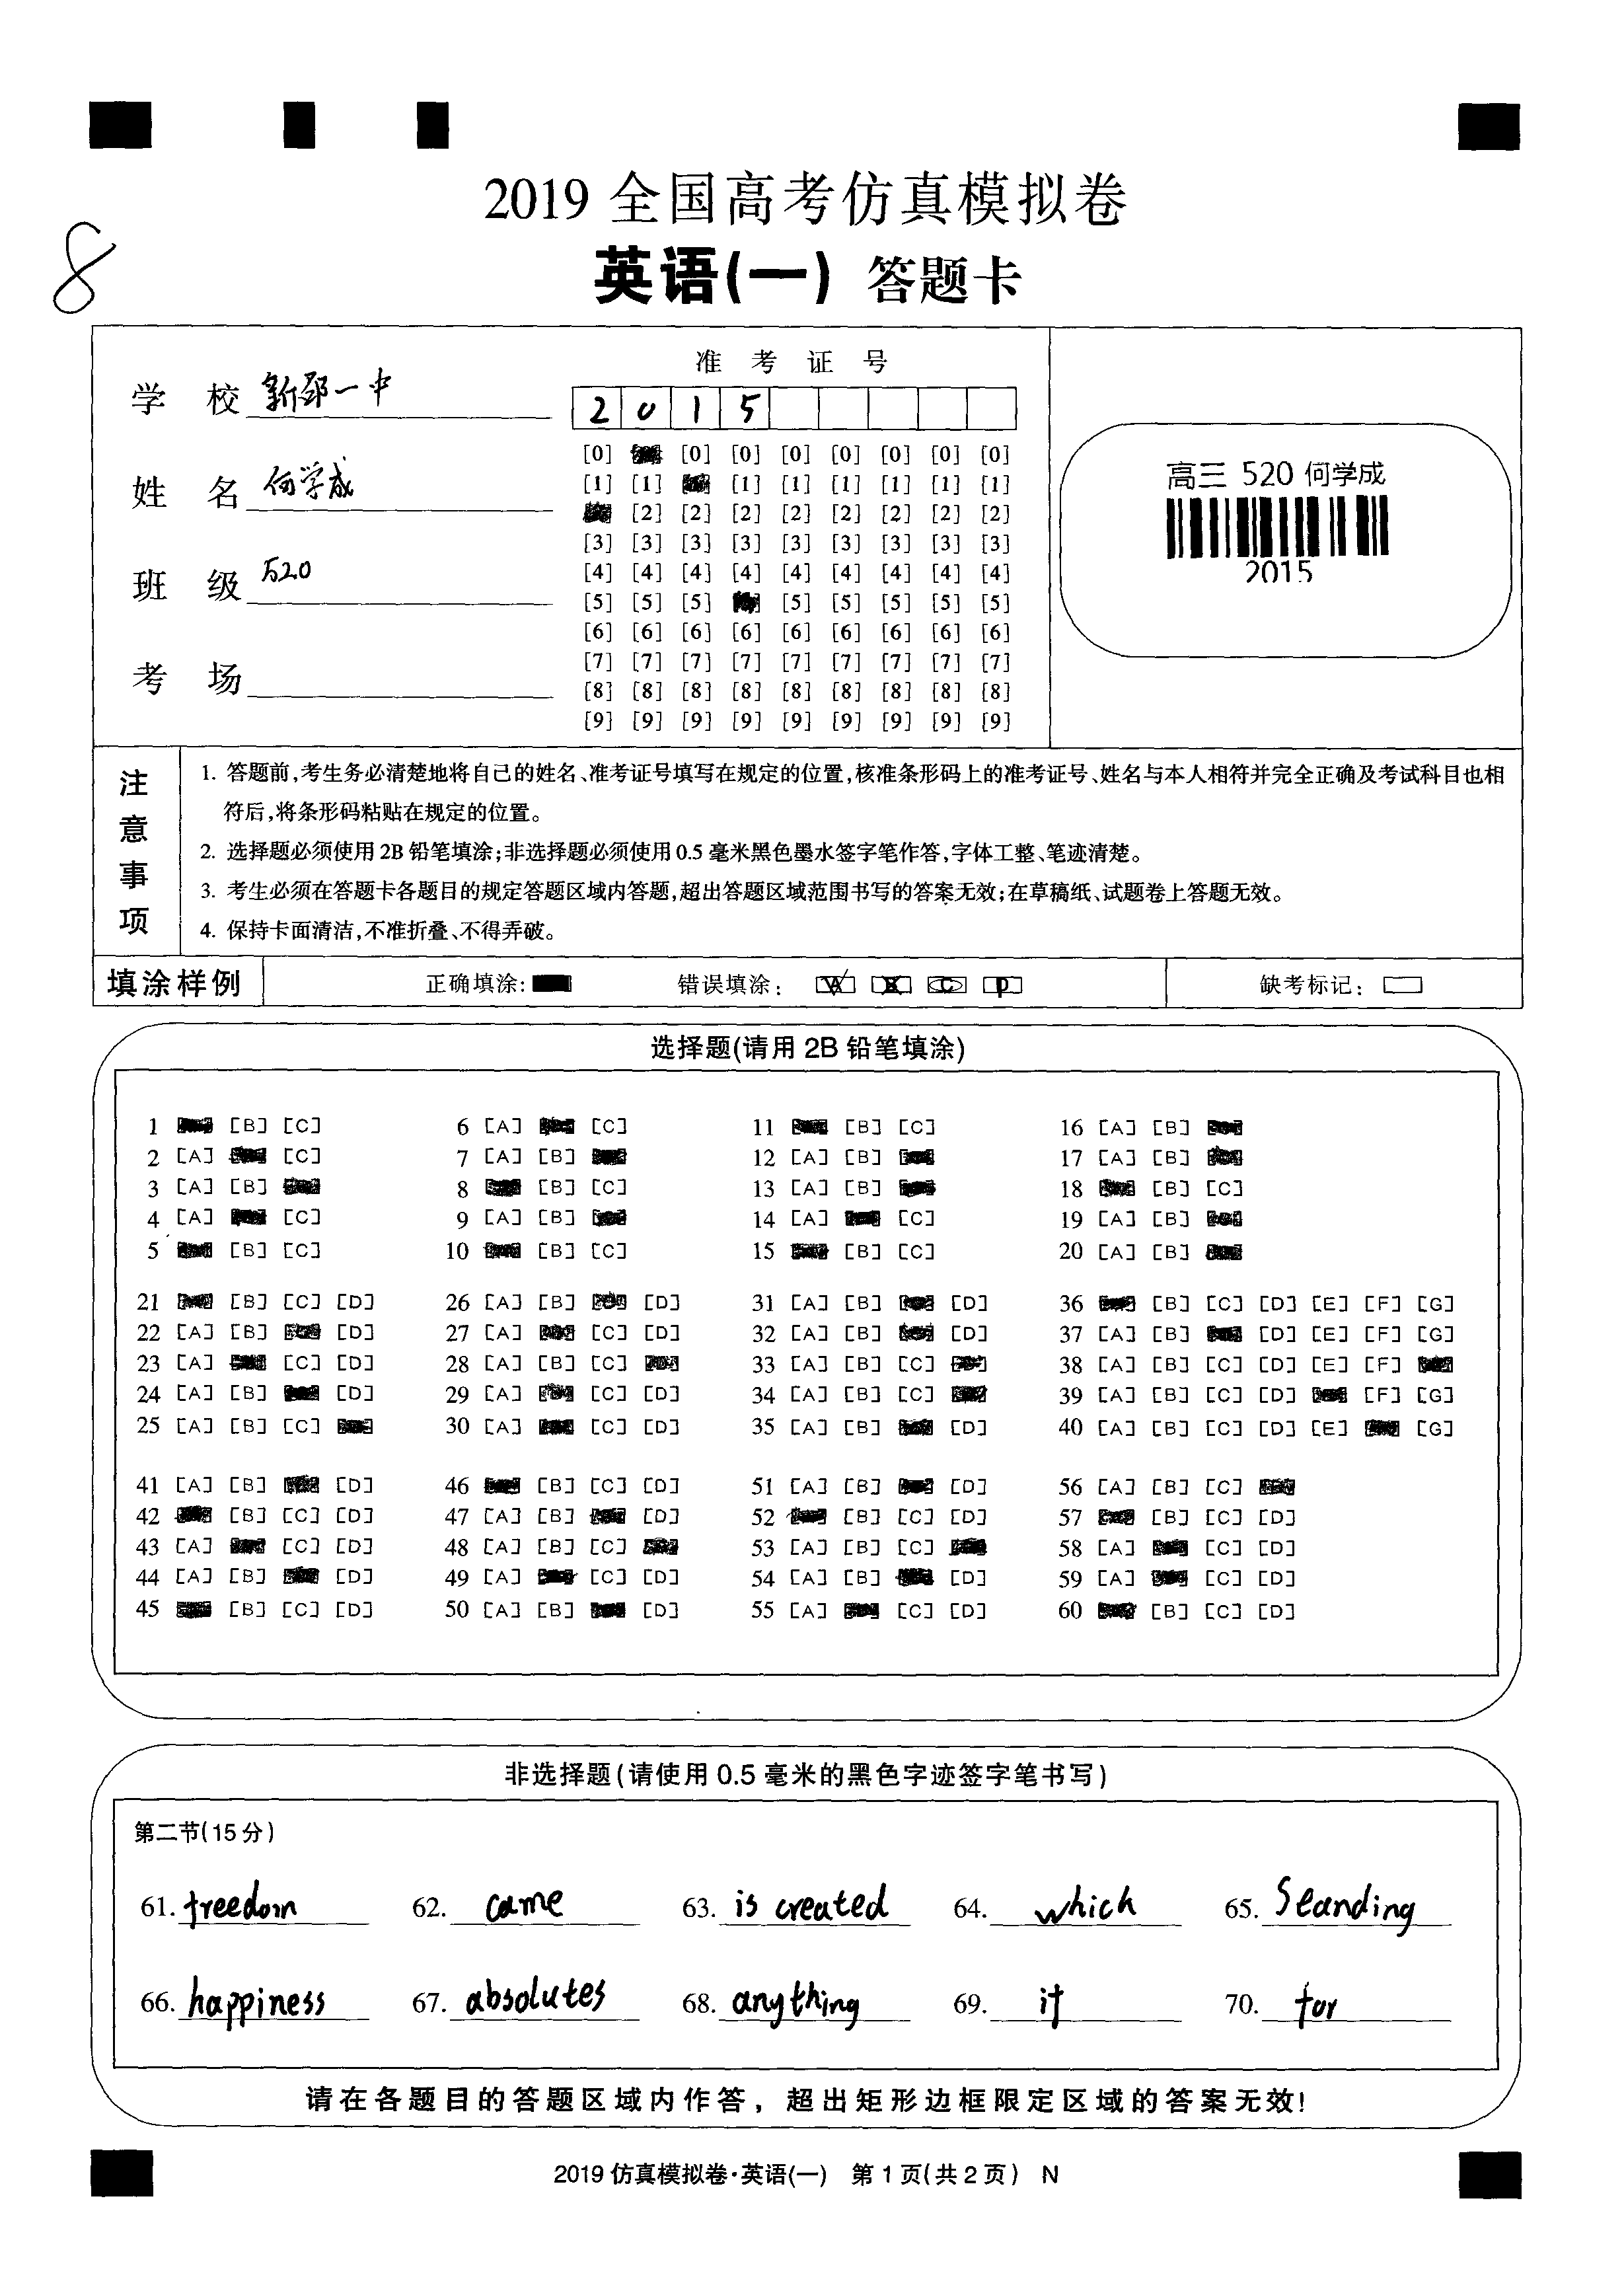 2019 全国高考仿真模拟卷
英语(一) 答题卡
8
学 校 新邵一中
姓 名 何学成
班 级 520
考 场
准 考 证 号
2 0 1 5
[0] [0] [0] [0] [0] [0] [0] [0]
[1] [1] [1] [1] [1] [1] [1] [1]
[2] [2] [2] [2] [2] [2] [2] [2]
[3] [3] [3] [3] [3] [3] [3] [3] [3]
[4] [4] [4] [4] [4] [4] [4] [4] [4]
[5] [5] [5] [5] [5] [5] [5] [5]
[6] [6] [6] [6] [6] [6] [6] [6] [6]
[7] [7] [7] [7] [7] [7] [7] [7] [7]
[8] [8] [8] [8] [8] [8] [8] [8] [8]
[9] [9] [9] [9] [9] [9] [9] [9] [9]
高三 520 何学成
2015
注意事项
1. 答题前,考生务必清楚地将自己的姓名、准考证号填写在规定的位置,核准条形码上的准考证号、姓名与本人相符并完全正确及考试科目也相
符后,将条形码粘贴在规定的位置。
2. 选择题必须使用2B铅笔填涂;非选择题必须使用0.5毫米黑色墨水签字笔作答,字体工整、笔迹清楚。
3. 考生必须在答题卡各题目的规定答题区域内答题,超出答题区域范围书写的答案无效;在草稿纸、试题卷上答题无效。
4. 保持卡面清洁,不准折叠、不得弄破。
填涂样例 正确填涂: 错误填涂: A B C D 缺考标记:
选择题(请用 2B 铅笔填涂)
1 [B] [C] 6 [A] [C] 11 [B] [C] 16 [A] [B]
2 [A] [C] 7 [A] [B] 12 [A] [B] 17 [A] [B]
3 [A] [B] 8 [B] [C] 13 [A] [B] 18 [B] [C]
4 [A] [C] 9 [A] [B] 14 [A] [C] 19 [A] [B]
5 [B] [C] 10 [B] [C] 15 [B] [C] 20 [A] [B]
21 [B] [C] [D] 26 [A] [B] [D] 31 [A] [B] [D] 36 [B] [C] [D] [E] [F] [G]
22 [A] [B] [D] 27 [A] [C] [D] 32 [A] [B] [D] 37 [A] [B] [D] [E] [F] [G]
23 [A] [C] [D] 28 [A] [B] [C] 33 [A] [B] [C] 38 [A] [B] [C] [D] [E] [F]
24 [A] [B] [D] 29 [A] [C] [D] 34 [A] [B] [C] 39 [A] [B] [C] [D] [F] [G]
25 [A] [B] [C] 30 [A] [C] [D] 35 [A] [B] [D] 40 [A] [B] [C] [D] [E] [G]
41 [A] [B] [D] 46 [B] [C] [D] 51 [A] [B] [D] 56 [A] [B] [C]
42 [B] [C] [D] 47 [A] [B] [D] 52 [B] [C] [D] 57 [B] [C] [D]
43 [A] [C] [D] 48 [A] [B] [C] 53 [A] [B] [C] 58 [A] [C] [D]
44 [A] [B] [D] 49 [A] [C] [D] 54 [A] [B] [D] 59 [A] [C] [D]
45 [B] [C] [D] 50 [A] [B] [D] 55 [A] [C] [D] 60 [B] [C] [D]
非选择题(请使用 0.5 毫米的黑色字迹签字笔书写)
第二节(15 分)
61. freedom 62. came 63. is created 64. which 65. Standing
66. happiness 67. absolutes 68. anything 69. it 70. for
请在各题目的答题区域内作答，超出矩形边框限定区域的答案无效!
2019 仿真模拟卷·英语(一) 第 1 页(共 2 页) N